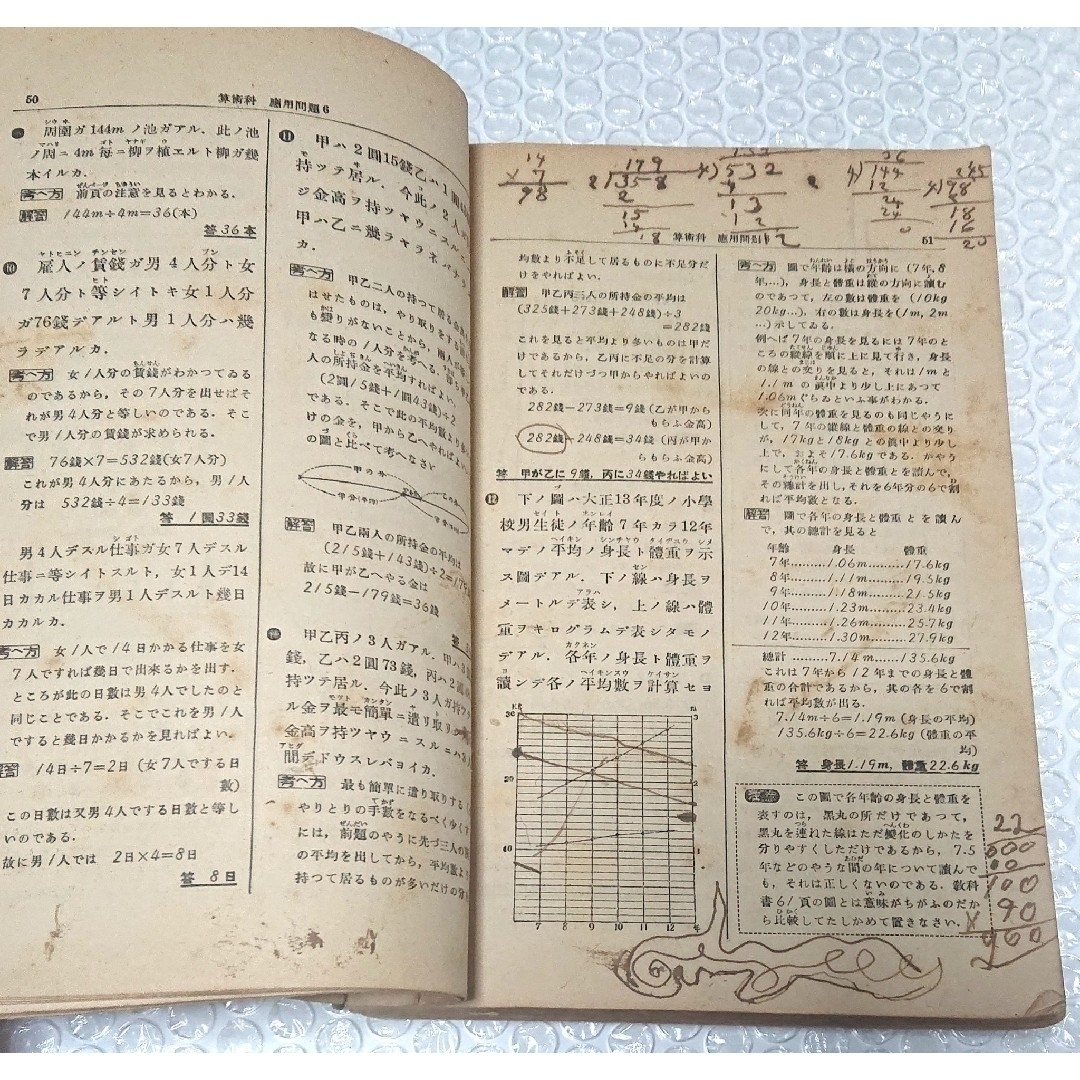 50
算術科 應用問題6
周圍ガ144mノ池ガアル．此ノ池
ノ周ニ4m毎ニ柳ヲ植エルト柳ガ幾
本イルカ．
考へ方 前頁の注意を見るとわかる．
解答 144m÷4m=36(本)
答 36本
❿ 雇人ノ賃錢ガ男4人分ト女
7人分ト等シイトキ女1人分
ガ76錢デアルト男1人分ハ幾
ラデアルカ．
考へ方 女1人分の賃錢がわかつてゐる
のであるから，その7人分を出せばそ
れが男4人分と等しいのである．そこ
で男1人分の賃錢が求められる．
解答 76錢×7=532錢(女7人分)
これが男4人分にあたるから，男1人
分は 532錢÷4=133錢
答 1圓33錢
男4人デスル仕事ガ女7人デスル
仕事ニ等シイトスルト，女1人デ14
日カカル仕事ヲ男1人デスルト幾日
カカルカ．
考へ方 女1人で14日かかる仕事を女
7人ですれば幾日で出來るかを出す．
ところが此の日數は男4人でしたのと
同じことである．そこでこれを男1人
ですると幾日かかるかを見ればよい．
解答 14日÷7=2日（女7人でする日
數）
この日數は又男4人でする日數と等し
いのである．
故に男1人では 2日×4=8日
答 8日
⓫ 甲ハ2圓15錢乙ハ1圓
持ツテ居ル．今此ノ2人
ジ金高ヲ持ツヤウニスル
甲ハ乙ニ幾ラヤラネバナ
カ．
考へ方 甲乙二人の持つて居る金高
はせたものは，やり取りをする
も變りがないことから，兩人が等
なる時の1人分を考へる．
人の所持金を平均すればよい．
(2圓15錢+1圓43錢)÷2
である．そこで此の平均數より
けの金を，甲から乙へやればよい
の圖と比べて考へなさい
甲の分
甲分(平均)
解答 甲乙兩人の所持金の平均は
(215錢+143錢)÷2=179錢
故に甲が乙へやる金は
215錢-179錢=36錢
甲乙丙ノ3人ガアル．甲ハ3圓
錢，乙ハ2圓73錢，丙ハ2圓
持ツテ居ル．今此ノ3人ガ持ツ
ル金ヲ最モ簡單ニ遣リ取リ
金高ヲ持ツヤウニスルニハ3人
間デドウスレバヨイカ．
考へ方 最も簡單に遣り取りする
やりとりの手數をなるべく少く
には，前題のやうに先づ三人の
の平均を出してから，平均數より
持つて居るものが多いだけの分
14
×7
98
179
2)358
2
15
14
18
4)532
4
13
12
12
36
4)144
12
24
24
0
245
4)98
8
18
16
20
算術科 應用問題
51
均數より不足して居るものに不足分だ
けをやればよい．
解答 甲乙丙三人の所持金の平均は
(325錢+273錢+248錢)÷3
=282錢
これを見ると平均より多いものは甲だ
けであるから，乙丙に不足の分を計算
してそれだけづつ甲からやればよいの
である．
282錢-273錢=9錢(乙が甲から
もらふ金高)
282錢-248錢=34錢(丙が甲か
らもらふ金高)
答 甲が乙に9錢，丙に34錢やればよい
⓬ 下ノ圖ハ大正13年度ノ小學
校男生徒ノ年齡7年カラ12年
マデノ平均ノ身長ト體重ヲ示
ス圖デアル．下ノ線ハ身長ヲ
メートルデ表シ，上ノ線ハ體
重ヲキログラムデ表シタモノ
デアル．各年ノ身長ト體重ヲ
讀ンデ各ノ平均數ヲ計算セヨ
Kg
m
30
20
10
7 8 9 10 11 12
考へ方 圖で年齡は横の方向に（7年，8
年，…），身長と體重は縱の方向に讀む
のであつて，左の數は體重を（10kg
20kg…），右の數は身長を(1m，2m
…)示してゐる．
例へば7年の身長を見るには7年のと
ころの縱線を順に上に見て行き，身長
の線との交りを見ると，それは1mと
1.1mの眞中より少し上にあつて
1.06mぐらゐといふ事がわかる．
次に同年の體重を見るのも同じやうに
して，7年の縱線と體重の線との交り
が，17kgと18kgとの眞中より少し
上で，およそ17.6kgである．かやう
にして各年の身長と體重とを讀んで，
その總計を出し，それを6年分の6で割
れば平均數となる．
解答 圖で各年の身長と體重とを讀ん
で，其の總計を見ると
年齡 身長 體重
7年………1.06m………17.6kg
8年………1.11m………19.5kg
9年………1.18m………21.5kg
10年………1.23m………23.4kg
11年………1.26m………25.7kg
12年………1.30m………27.9kg
總計………7.14m……135.6kg
これは7年から12年までの身長と體
重の合計であるから，其の各を6で割
れば平均數が出る．
7.14m÷6=1.19m (身長の平均)
135.6kg÷6=22.6kg (體重の平
均)
答 身長1.19m，體重22.6kg
注意 この圖で各年齡の身長と體重を
表すのは，黑丸の所だけであつて，
黑丸を連れた線はただ變化のしかたを
分りやすくしただけであるから，7.5
年などのやうな間の年について讀んで
も，それは正しくないのである．教科
書61頁の圖とは意味がちがふのだか
ら比較してたしかめて置きなさい．
22
100
90